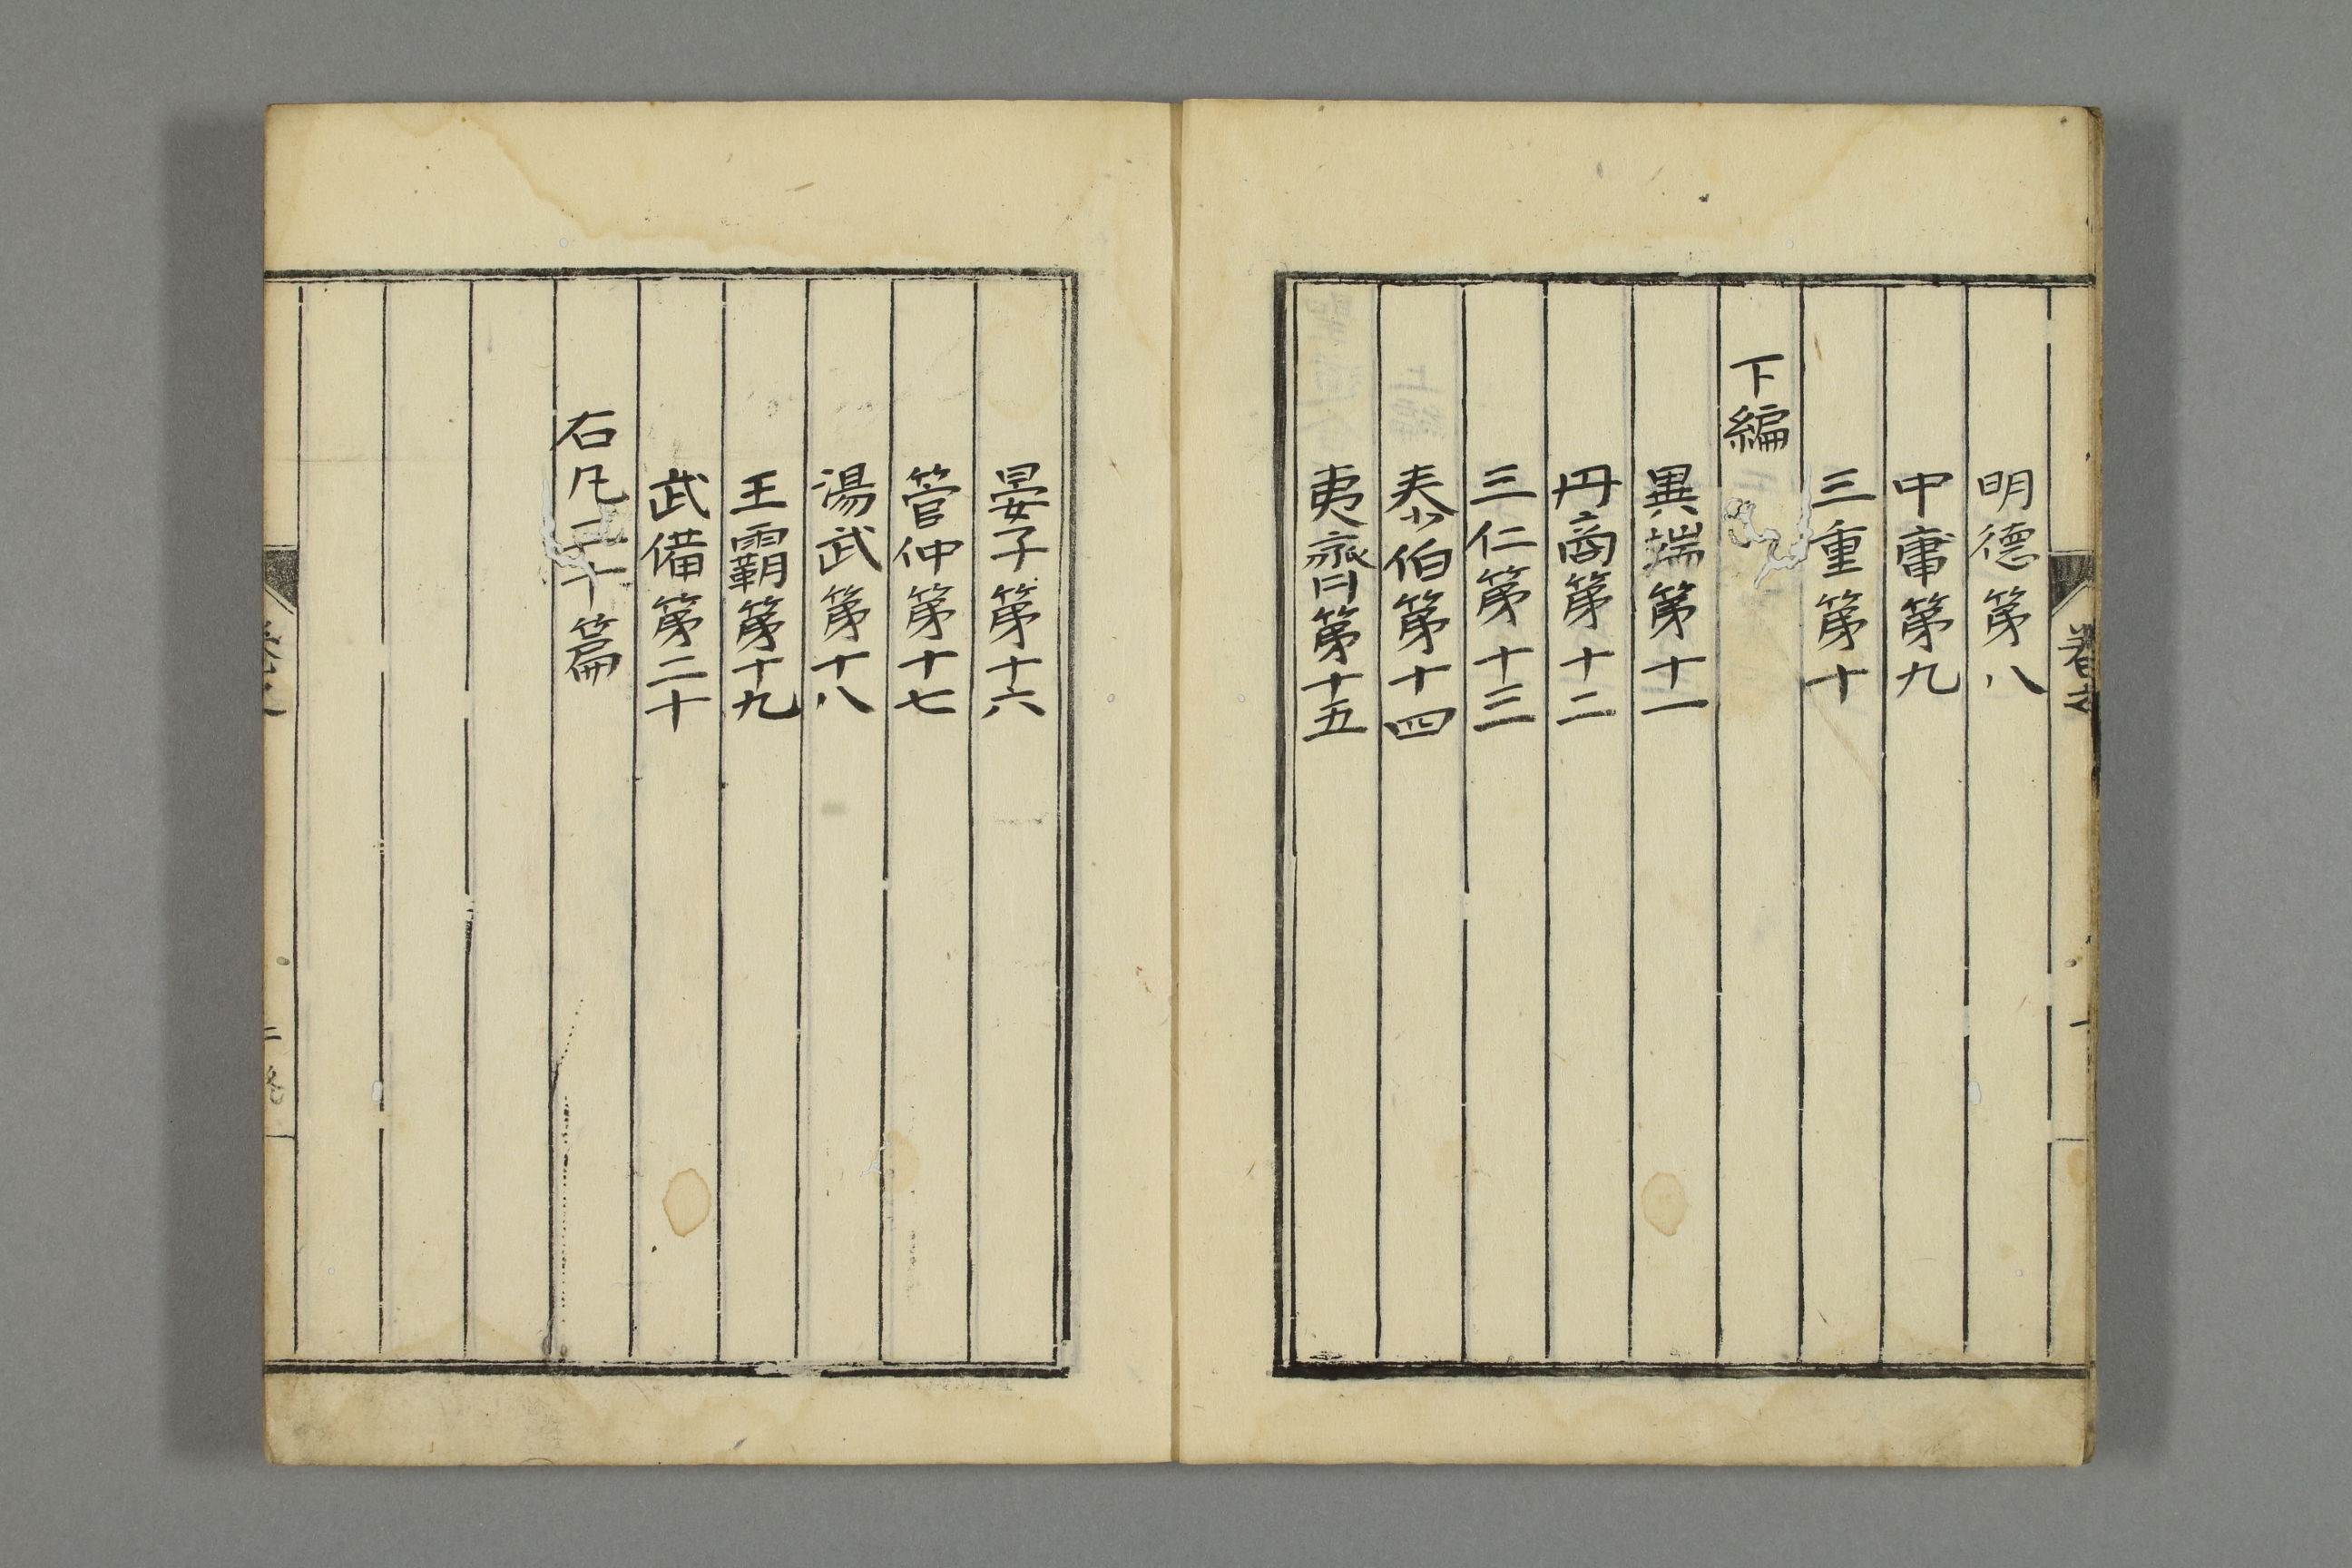 明德第八
中庸第九
三重第十
下編
異端第十一
丹商第十二
三仁第十三
泰伯第十四
夷齊第十五
晏子第十六
管仲第十七
湯武第十八
王霸第十九
武備第二十
右凡二十篇